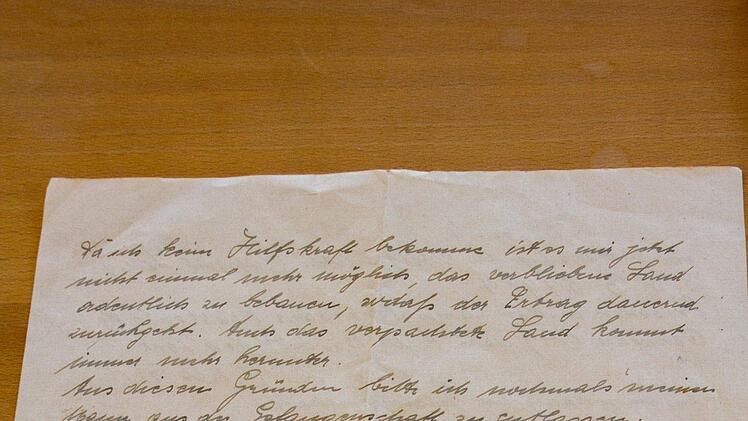 Da ich keine Hilfskraft bekomme ist es mir jetzt
nicht einmal mehr möglich, das verbliebene Land
ordentlich zu bebauen, sodaß der Ertrag dauernd
zurückgeht. Auch das verpachtete Land kommt
immer mehr herunter.
Aus diesen Gründen bitte ich nochmals meinen
Mann aus der Gefangenschaft zu entlassen.